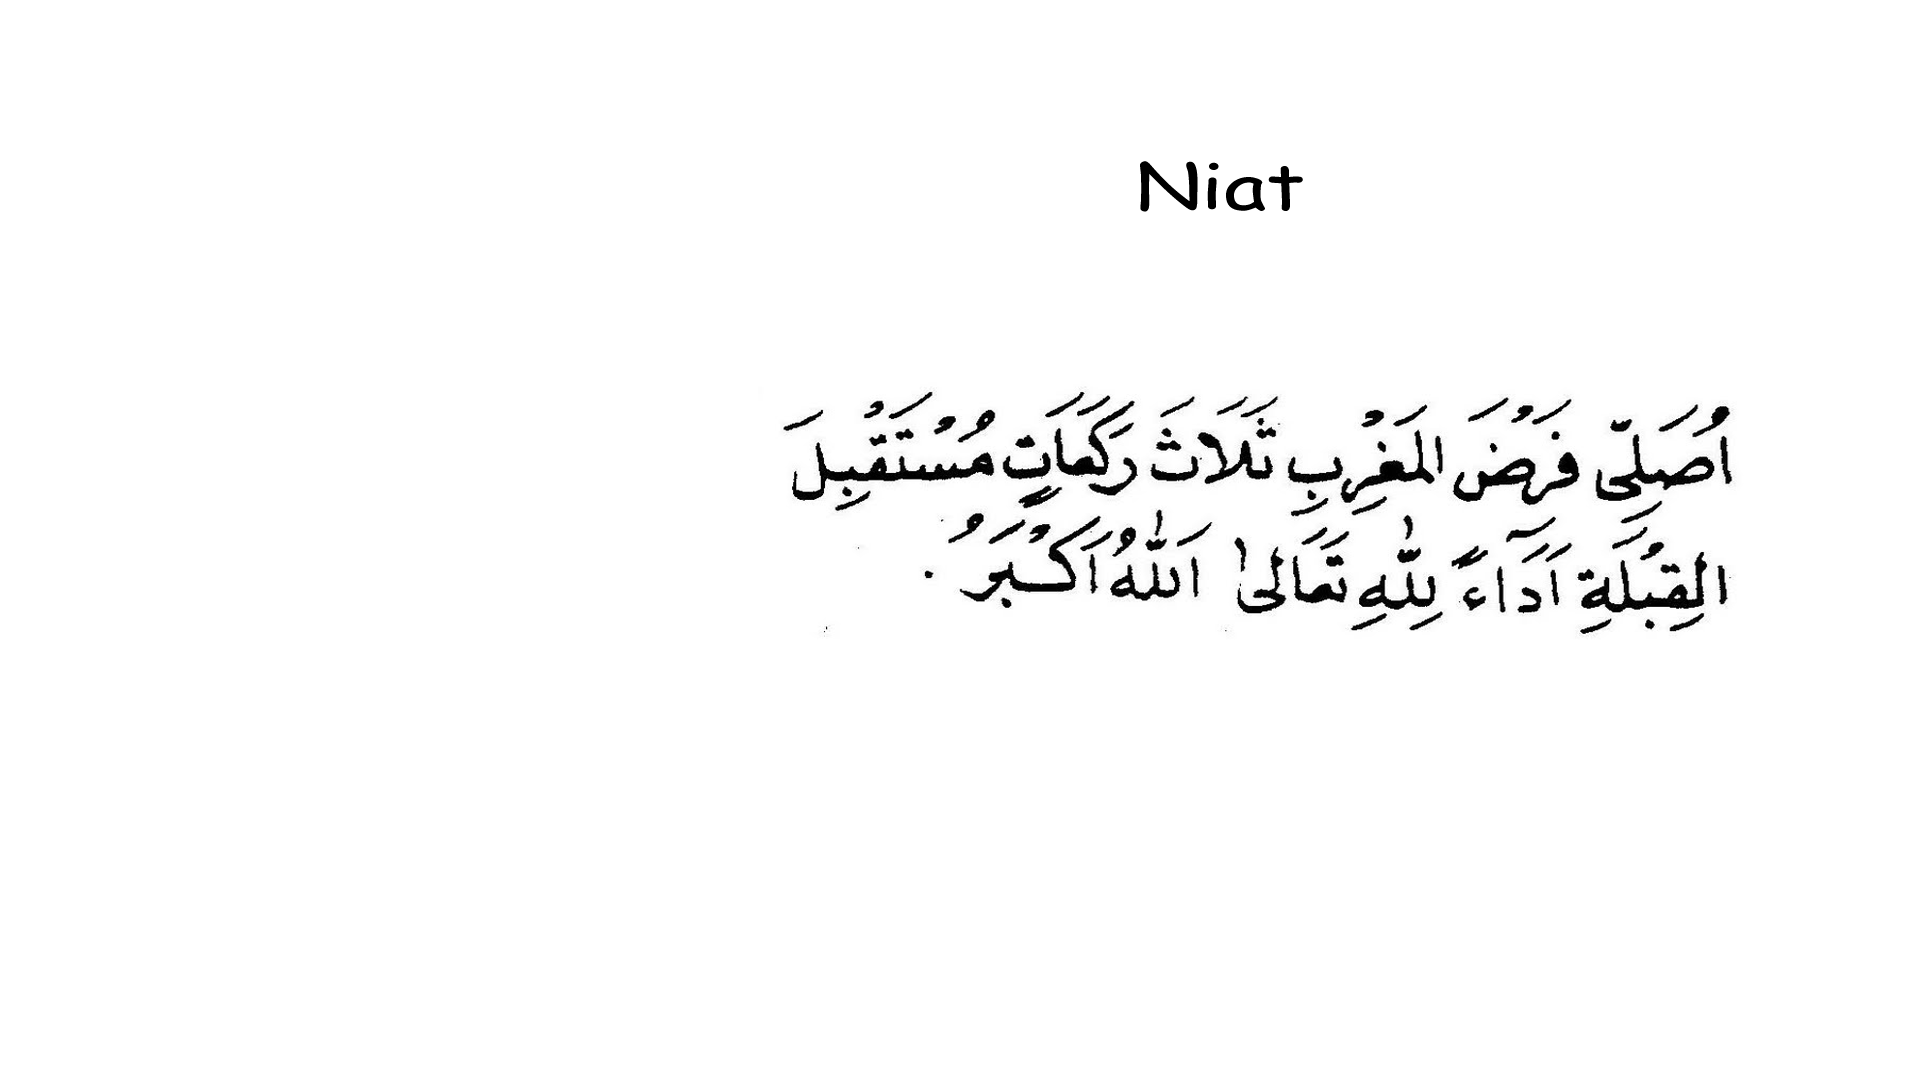 Niat
اُصَلِّى فَرْضَ الْمَغْرِبِ ثَلَاثَ رَكَعَاتٍ مُسْتَقْبِلَ
الْقِبْلَةِ اَدَآءً لِلّٰهِ تَعَالىٰ اَللّٰهُ اَكْبَرُ .